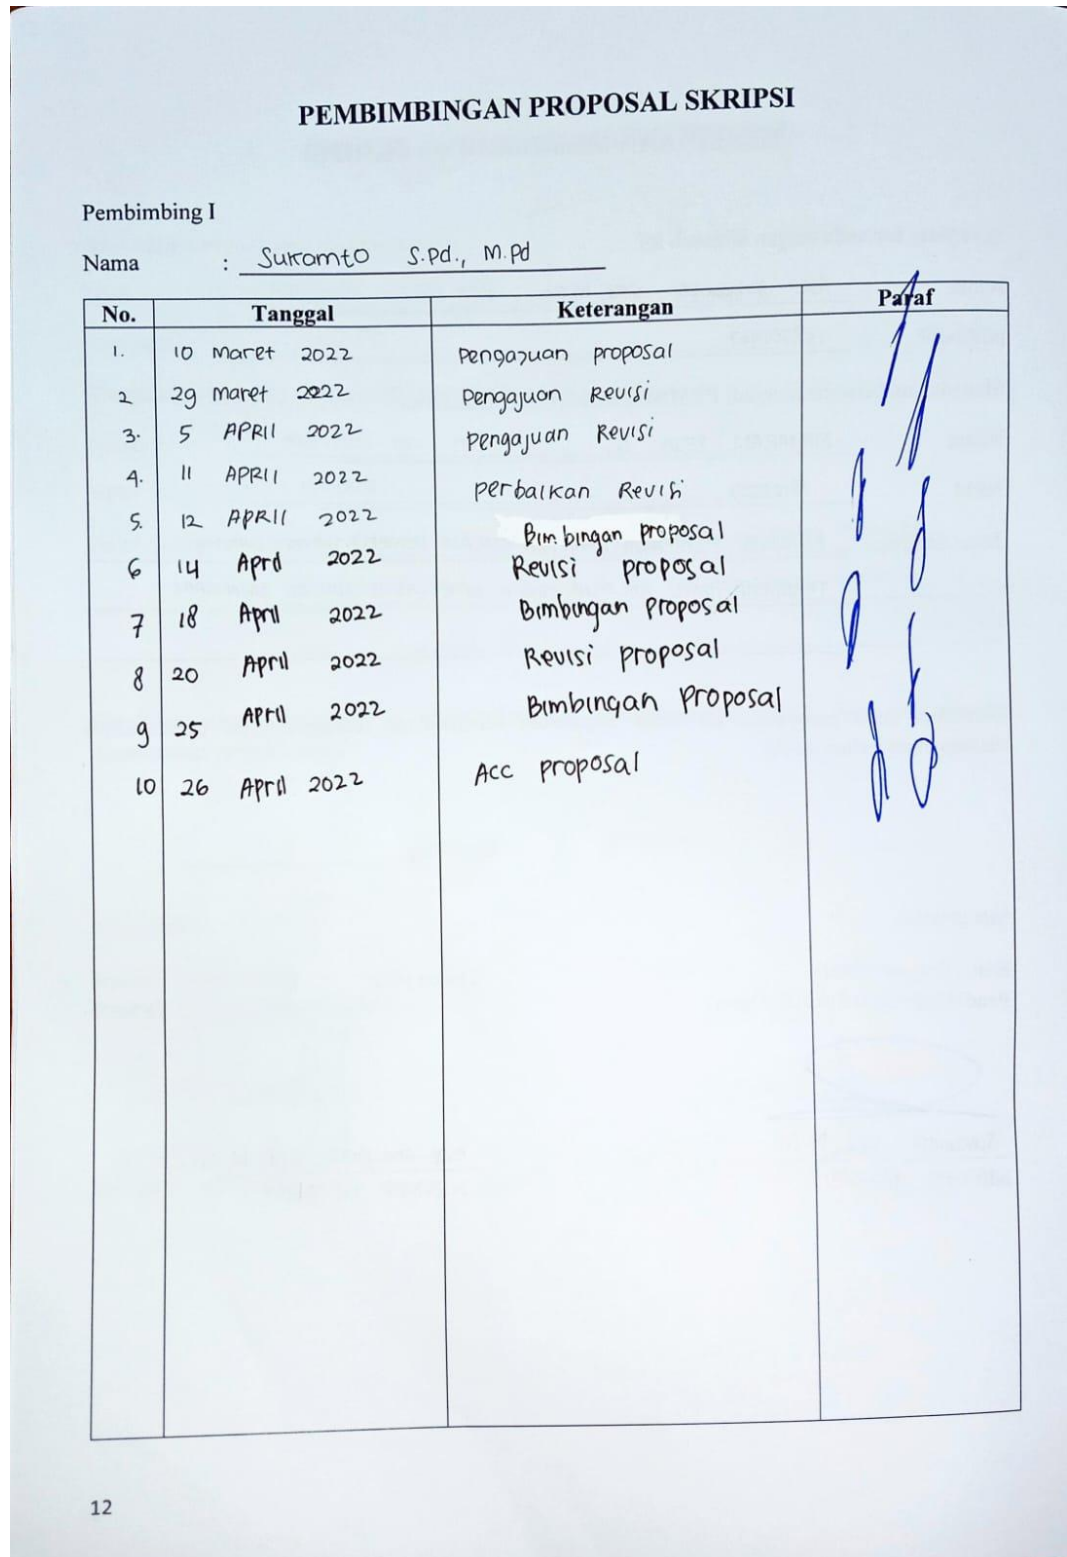 PEMBIMBINGAN PROPOSAL SKRIPSI
Pembimbing I
Nama : Sukamto S.Pd., M.Pd
No. Tanggal Keterangan Paraf
1. 10 Maret 2022 Pengajuan proposal
2 29 Maret 2022 Pengajuan Revisi
3. 5 APRIl 2022 Pengajuan Revisi
4. 11 APRIl 2022 perbaikan Revisi
5. 12 APRIl 2022 Bimbingan proposal
6 14 April 2022 Revisi proposal
7 18 April 2022 Bimbingan proposal
8 20 April 2022 Revisi proposal
9 25 April 2022 Bimbingan Proposal
10 26 April 2022 Acc proposal
12